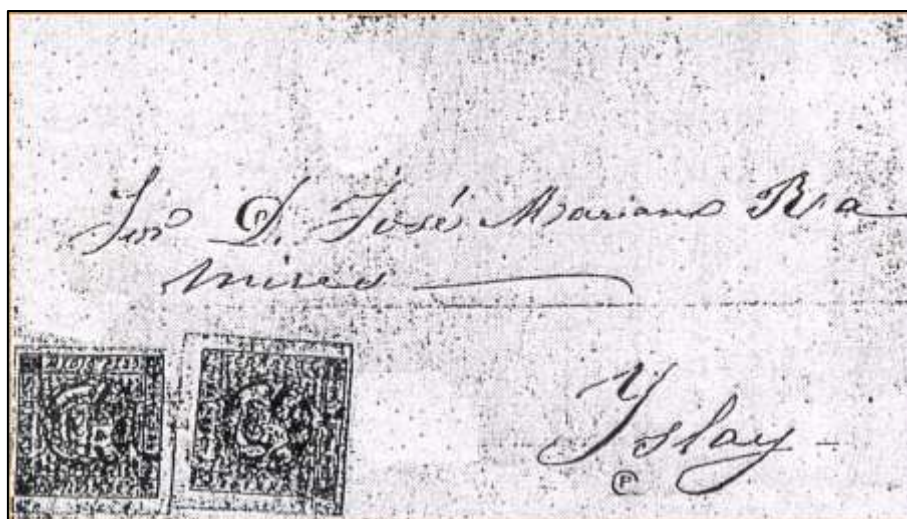 Sor D. José Mariano Ra
mires
Yslay
P